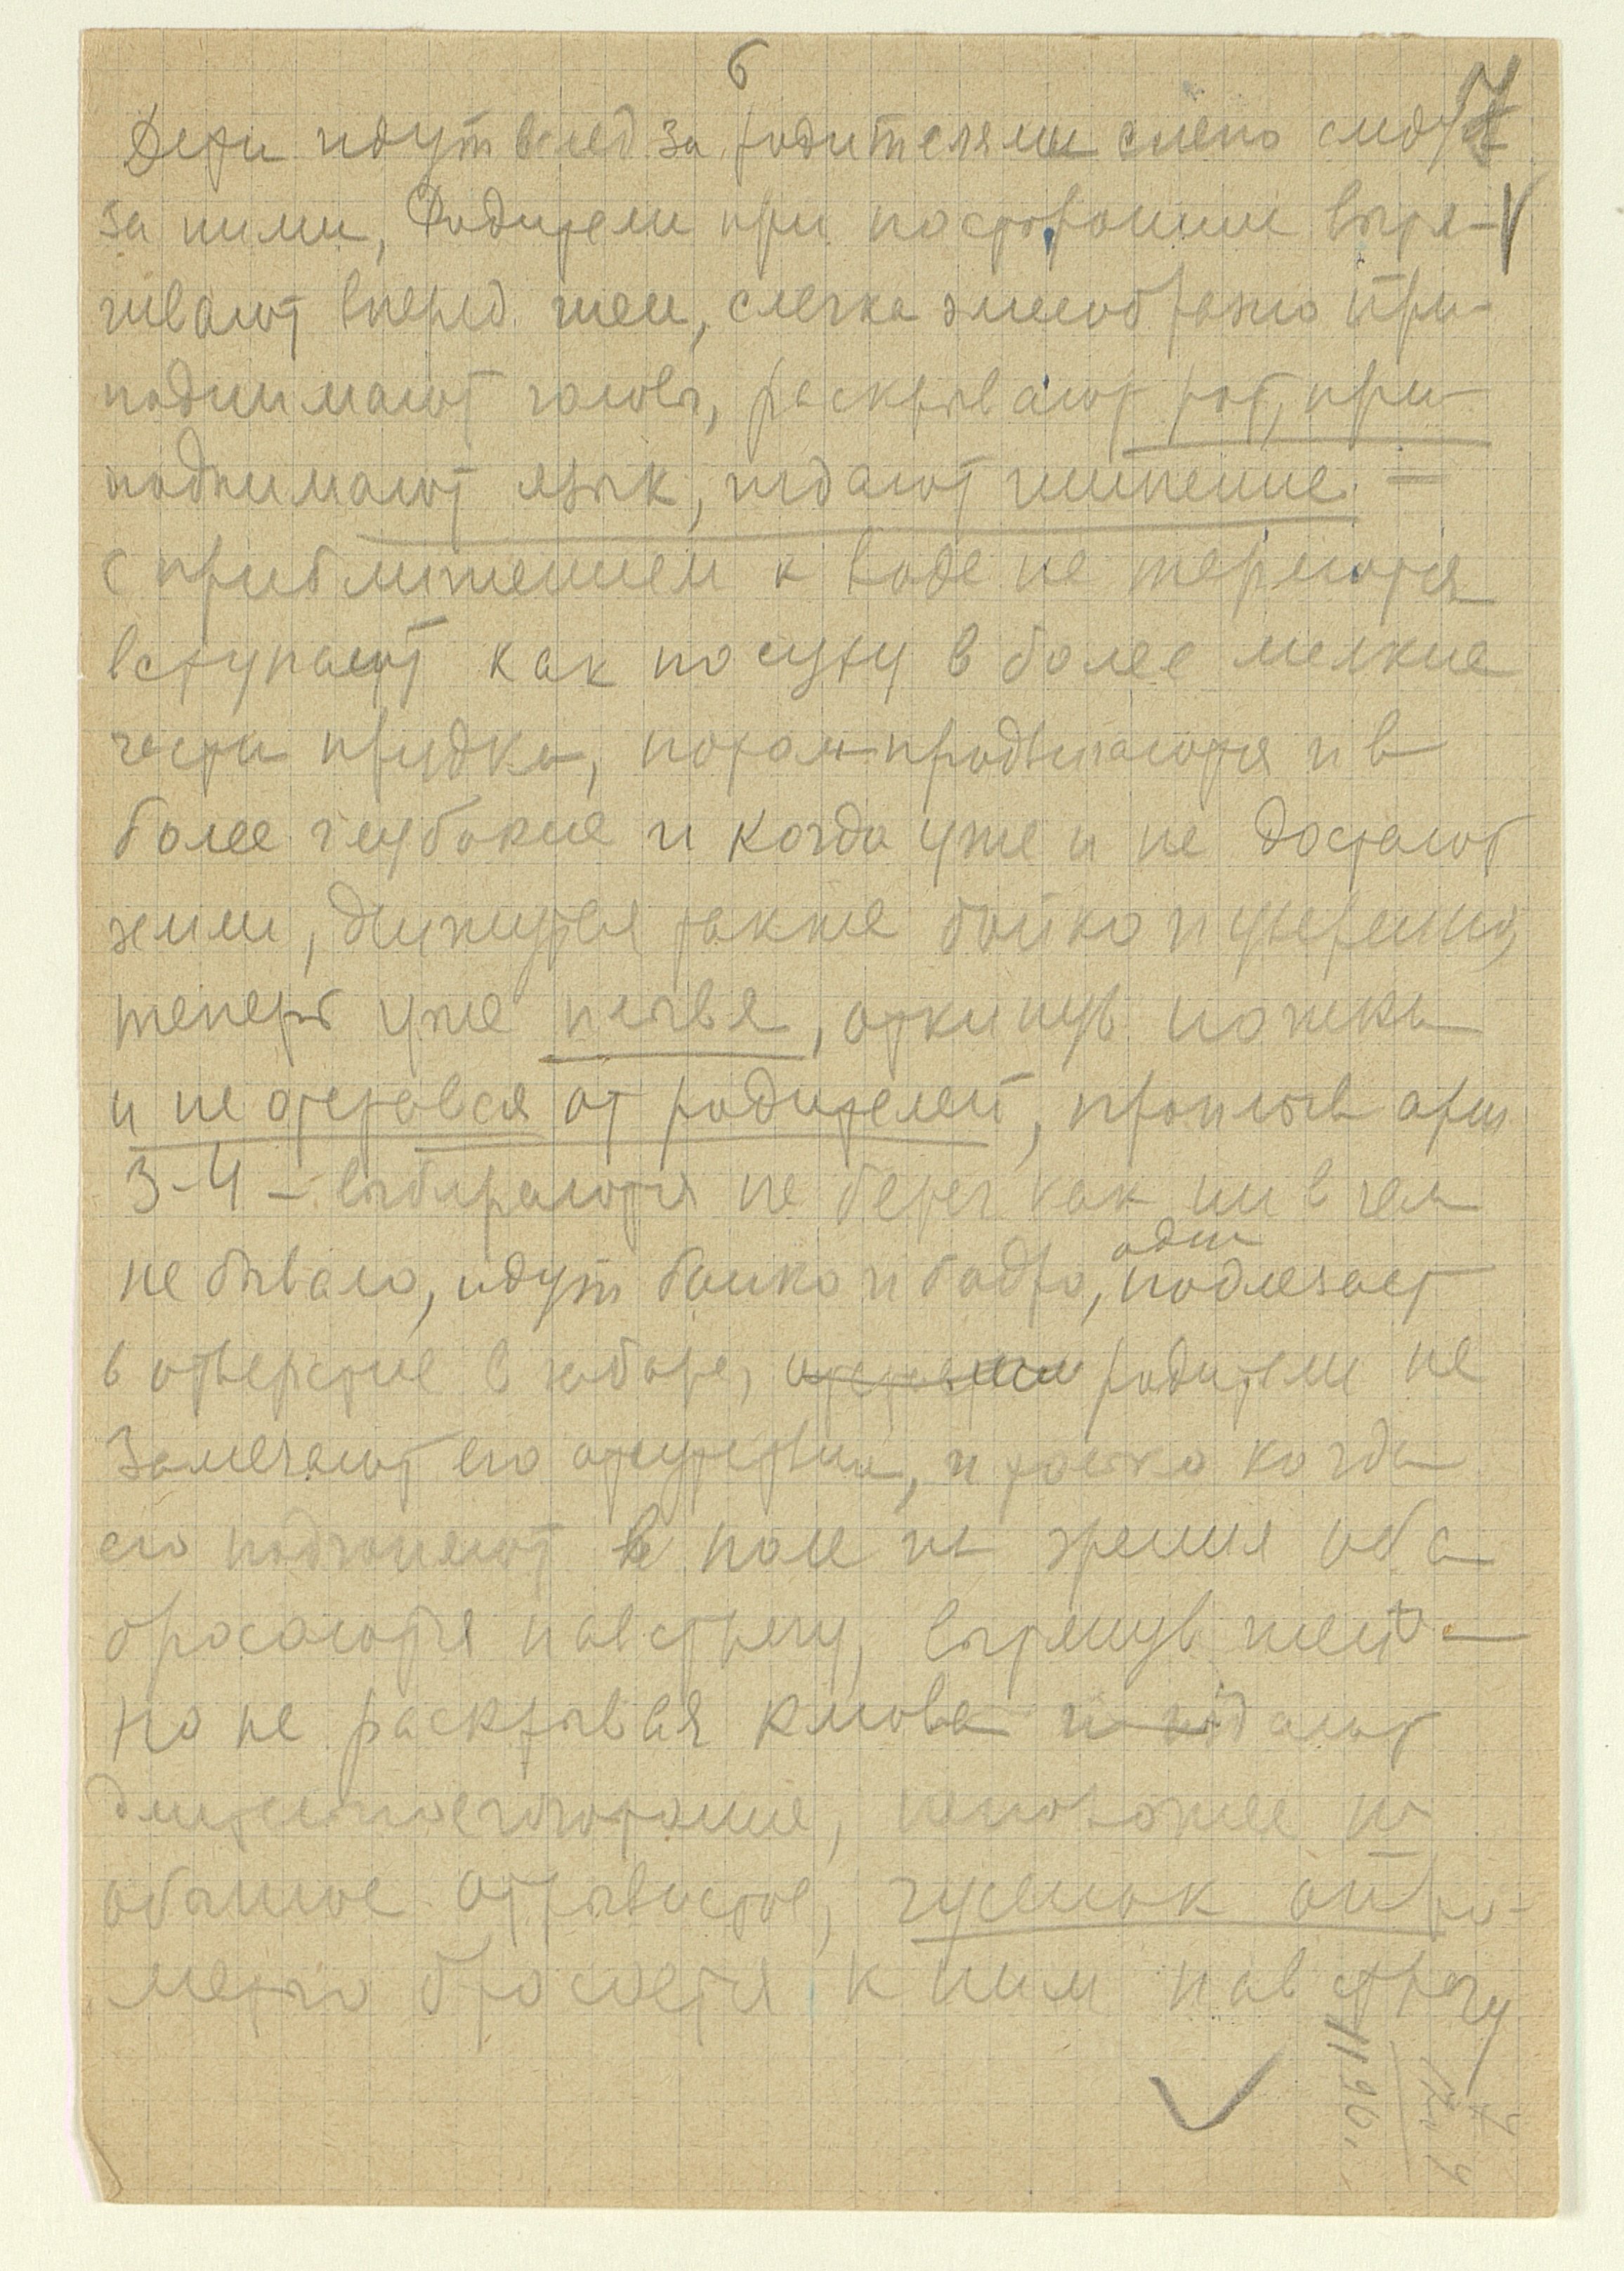 6
7
Дети идут вслед за родителями слепо следуя
за ними, Родители при постороннем вытя-
гивают вперед шеи, слегка змееобразно при-
поднимают головы, раскрывают рот, при-
поднимают язык, издают шипение. —
с приближением к воде не теряются
вступают как по суху в более мелкие
части прудка, потом продвигаются и в
более глубокие и когда уже и не достают
земли, движутся также бойко и уверенно,
теперь уже плывя, откинув ножки
и не отставая от родителей, проплыв арш
3-4 — выбираются на берег как ни в чем
не бывало, идут бойко и бодро, один подлезает
в отверстие в заборе, родители не
замечают его отсутствия, и только когда
его подгоняют в поле их зрения оба
бросаются навстречу, вытянув шеи —
но не раскрывая клюва и издают
длительное гоготание, непохожее на
обычное отрывистое, гусенок опро-
метью бросается к ним навстречу